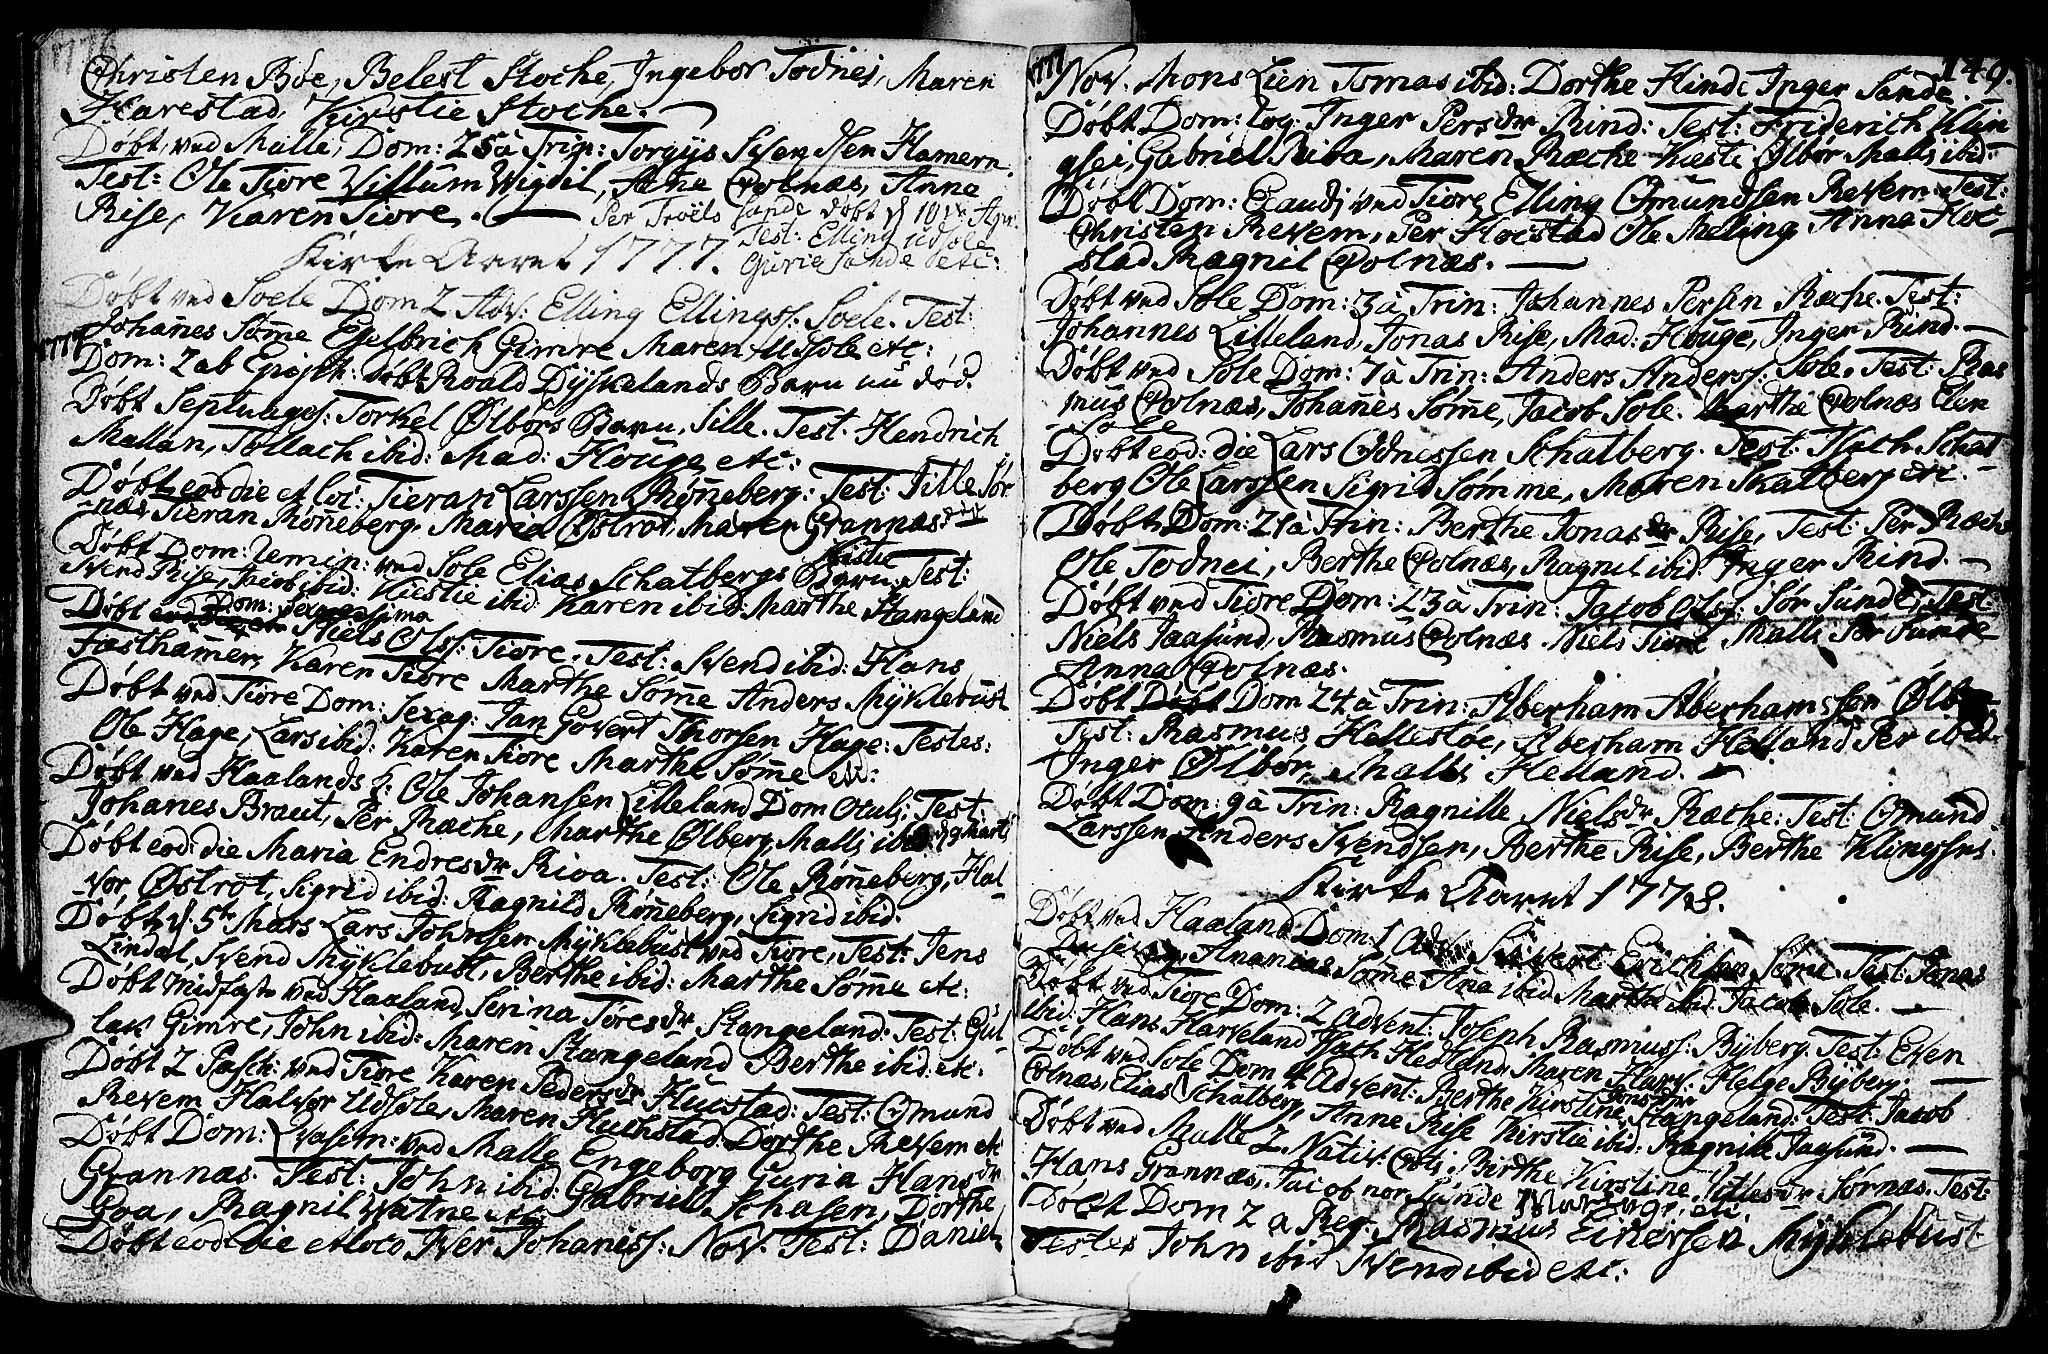 1776
Christen Böe, Belest Stocke, Ingebor Todnei, Maren
Harestad, Kirstie Stocke.
Döbt ved Malle, Dom: 25 à Trin: Torgiis Svendsen Hamern.
Test: Ole Tiore Villum Wigdil, Ane Polnæs, Anna
Rise, Karen Tiore.
Per Troëls Sunde döbt d 10de Apr.
Test: Elling Udsole
Gurie Sande etc:
Kirke Aaret 1777.
Döbt ved Soele Dom 2 Adv: Elling Ellingss: Soele. Test:
Johañes Söm̃e Engelbrich Gimre Maren Udsole etc:
1777
Dom: 2 ab Epiph: döbt Roald Dyskelands Barn nu död.
Döbt Septuages: Torkel Ölbörs Barn, Sille. Test. Hendrich
Mallan, Tollach ibid: Mad: Houge etc:
Döbt eod die et loc: Tieran Larssen Röñeberg: Test: Jitlle Sör-
næs, Tieran Röñeberg, Maria Østrot, Maren Grannæs
Döbt Dom: Remin: ved Sole Elias Schatbergs Barn Kistie Test:
Svend Rise, Jacob ibid: Kiestie ibid Karen ibid: Marthe Stangeland
Döbt Dom: Sexagesima Niels Olss: Tiore. Test: Svend ibid: Hans
Fastham̃er, Karen Tiore Marthe Söm̃e Anders Myklebust
Döbt ved Tiore Dom: Sexag: Jan Govert Thorsen Hage: Testes:
Ole Hage, Lars ibid: Karen Tiore Marthe Söm̃e etc:
Döbt ved Haalands K: Ole Johansen Lilleland Dom Oculi, Test:
Johanes Braut, Per Ræche, Marthe Ölberg Malli ibid
Döbt eod: die Maria Endresdr Riva. Test: Ole Röñeberg, Hal-
vor Østrot, Sigrid ibid: Ragnild Röñeberg, Sigrid ibid.
Döbt d. 5te Mars Lars Johnsen Myklebust ved Tiore, Test: Jens
Lindal, Svend Myklebust, Berthe ibid: Marthe Söm̃e etc:
Döbt Midfaste ved Haaland, Serina Toresdr Stangeland: Test: Gul-
lak Gimre, John ibid: Maren Stangeland Berthe ibid: etc:
Döbt 2 Pasch: ved Tiore Karen Pedersdr Hustad: Test: Omund
Revem Halvor Udsole, Maren Huchstad Dorthe Revem etc
Döbt Dom: Qvasim: ved Malle Engeborg Guria Hansdr
Grannæs. Test: John ibid: Gabriel Schasen, Dorthe
Goa, Ragnil Watne etc
Döbt eod die et loco Iver Johaniss: Nov. Test: Daniel
1777
149.
Nov. Mons Lien Tomas ibid: Dorthe Hinde Inger Sande.
Döbt Dom: Inger Persdr Rind: Test: Friderich Klin
gsei, Gabriel Riva, Maren Ræche Kiesti Ölbör Malli ibid:
Döbt Dom: Exaudi ved Tiore Elling Omundsen Revem: Test:
Christen Revem, Per Hocstad Ole Meling Anna Hoc-
stad Ragnil Polnæs.
Döbt ved Sole Dom: 3 à Trin: Johannes Persen Ræche. Test:
Johannes Lilleland, Jonas Rise, Mad: Houge, Inger Rind.
Döbt ved Sole Dom: 7 à Trin: Anders Anderss: Sole. Test: Ras
mus Polnæs, Johañes Söm̃e, Jacob Sole. Marthe Polnæs Elen
Sole
Döbt eod: die Lars Odnessen Schatberg. Test: Schat-
berg Ole Larssen Sigrid Sömme, Maren Skatberg etc.
Döbt Dom: 21 à Trin: Berthe Jonasdr Rise, Test: Per Ræche
Ole Todnei, Berthe Polnæs, Ragnil ibid: Inger Rind.
Döbt ved Tiore Dom: 23 à Trin: Jacob Olss: Sör Sunde, Test:
Niels Jaasund, Rasmus Polnæs Niels Tiore Malli Sör Sunde
Anna Polnæs.
Döbt Döbt Dom 24 à Trin: Aberham Aberhamssøn Ölb
Test: Rasmus Hellestoe, Aberham Helland Per ibid.
Inger Ölbör Malli Helland.
Döbt Dom: 9 à Trin: Ragnille Nielsdr Ræche: Test: Omund
Larssen Anders Svendsen, Berthe Rise, Berthe
Kirke Aaret 1778.
Döbt ved Haaland Dom: 1 Adv: Sivert Erichsen Söme. Test: Jonas
Ananias Söme Ana ibid Marthe ibid: Jacob Sole.
Döbt ved Tiore Dom: 2 Advent: Joseph Rasmuss: Byberg. Test: Even
ibid: Hans Harveland Helland. Maren Harv: Helge Byberg:
Döbt ved Sole Dom 4 Advent: Berthe Kirstine Stangeland: Test: Jacob
Polnæs, Elias Schatberg, Anne Rise Kirstie ibid: Ragnille Jaasund.
Döbt ved Malle 2 Nativ: Birthe Kirstine Sörnæs. Test:
Hans Grannæs, Jacob nor Sunde etc
Döbt Dom 2 a Reg. Rasmus Einersen Myklebust
Testes John ibid Svend ibid etc: